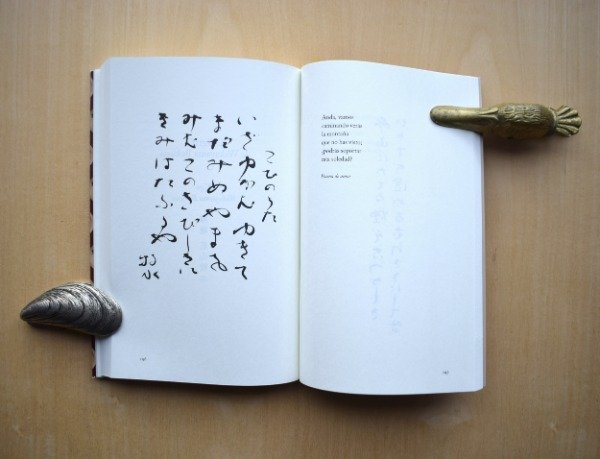 こひのうた
いざゆかんゆきて
まだみぬやまを
みむこのさびしさに
きみはたふるや
牧水
Anda, vamos
caminando verás
la montaña
que no has visto;
¿podrás soportar
esta soledad?
Poema de amor